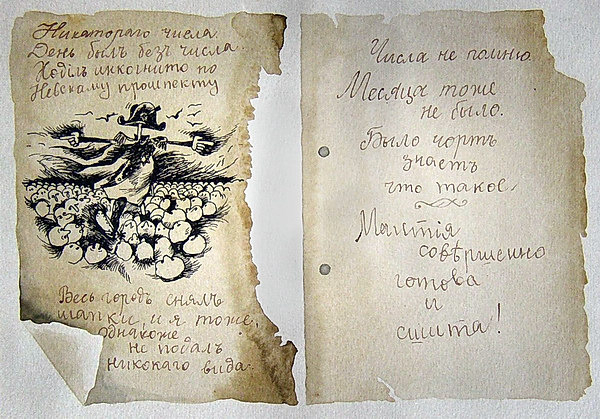 Никотораго числа.
День былъ безъ числа.
Ходілъ инкогнито по
Невскому проспекту
Весь городъ снялъ
шапки, и я тоже,
однакоже
не подалъ
никокаго вида.
Числа не помню.
Месяца тоже
не было.
Было чортъ
знаетъ
что такое.
Мантія
совѣршенно
готова
и
сшита!